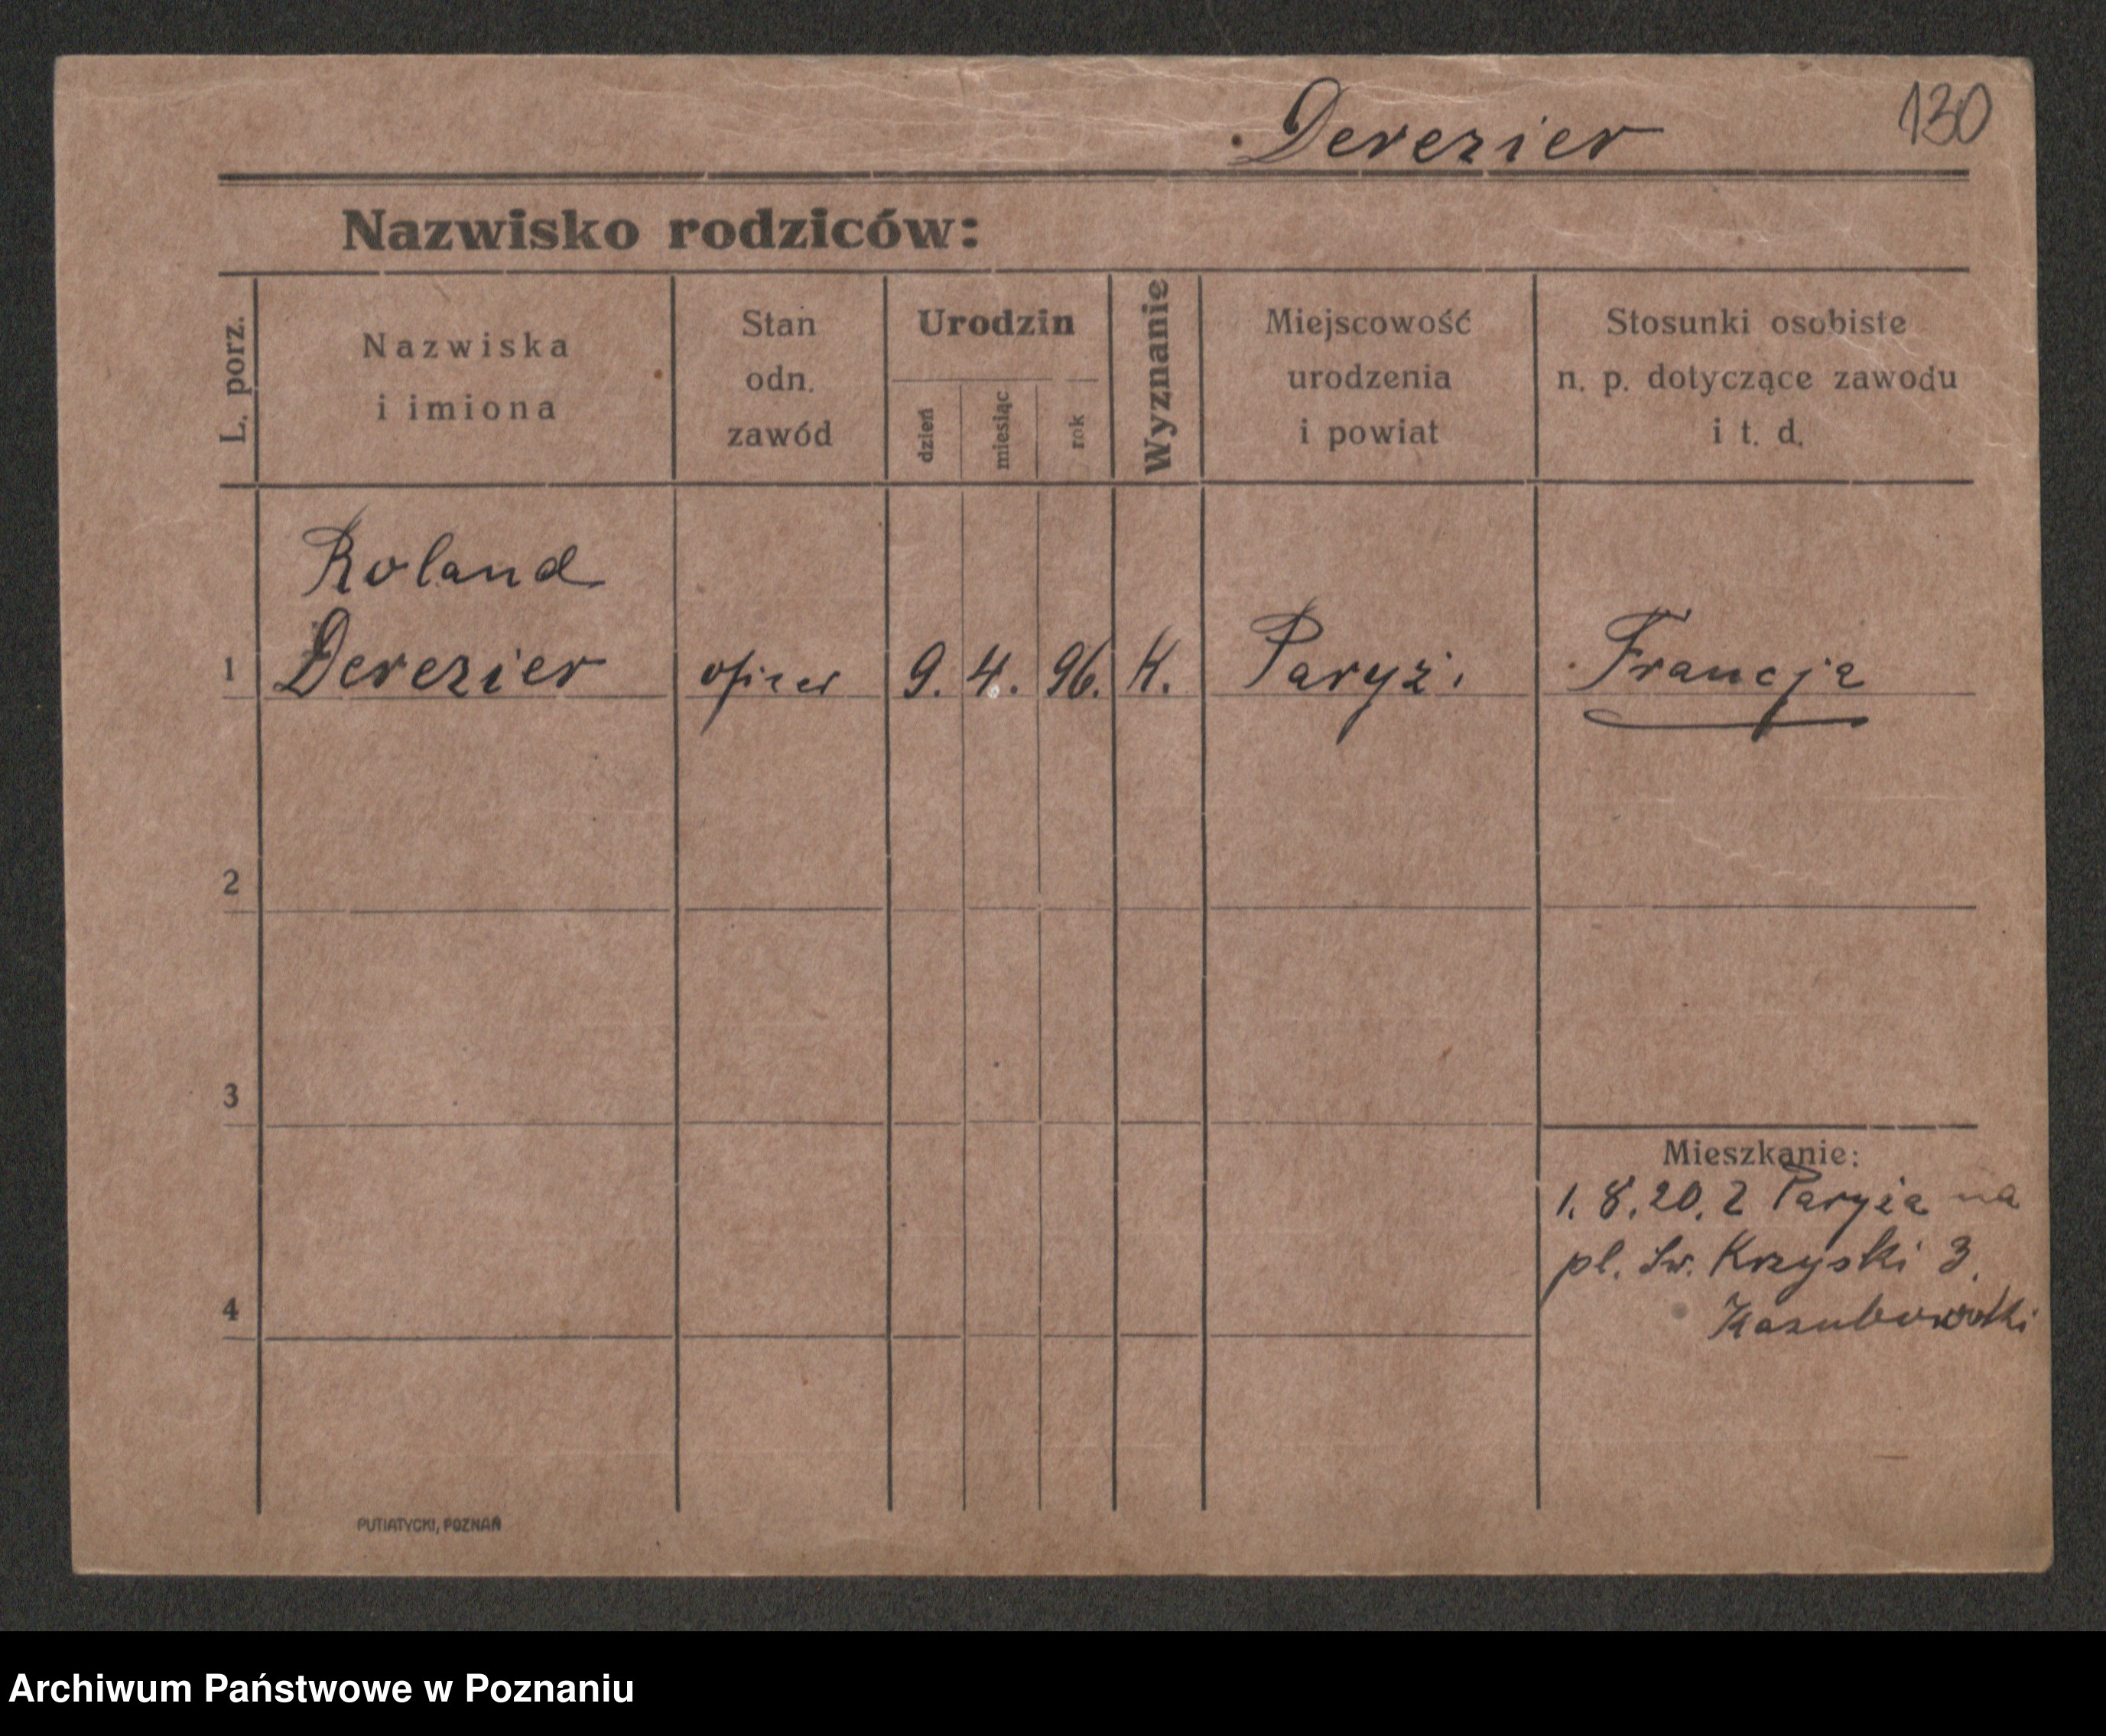 Derezier
130
Nazwisko rodziców:
L. porz.
Nazwiska
i imiona
Stan
odn.
zawód
Urodzin
dzień
miesiąc
rok
Wyznanie
Miejscowość
urodzenia
i powiat
Stosunki osobiste
n. p. dotyczące zawodu
i t. d.
Roland
1 Derezier oficer 9. 4. 96. K. Paryż. Francja
2
3
Mieszkanie:
1. 8. 20. z Paryża na
pl. Św. Krzyski 3.
4
PUTIATYCKI, POZNAŃ
Archiwum Państwowe w Poznaniu